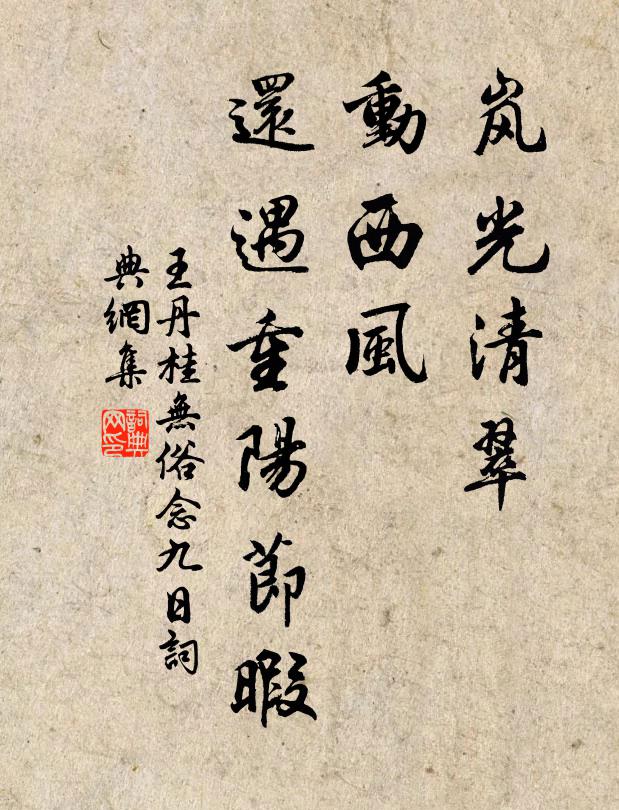 岚光清翠
動西風
還遇重陽節暇
王丹桂無俗念九日詞
典網集
詞典网印